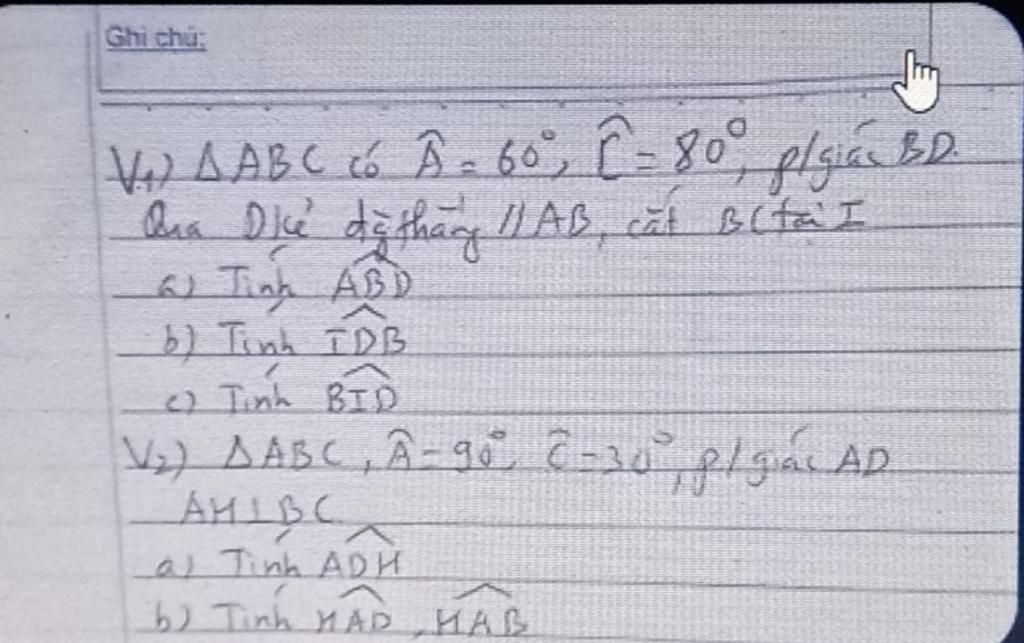 Ghi chú:
V.1) ΔABC có Â = 60°, Ĉ = 80°, p/giác BD.
Qua D kẻ đg thẳng // AB, cắt BC tại I
a) Tính \widehat{ABD}
b) Tính \widehat{IDB}
c) Tính \widehat{BID}
V2) ΔABC, Â = 90°, Ĉ = 30°, p/giác AD
AH⊥BC
a) Tính \widehat{ADH}
b) Tính \widehat{HAD}, \widehat{HAB}